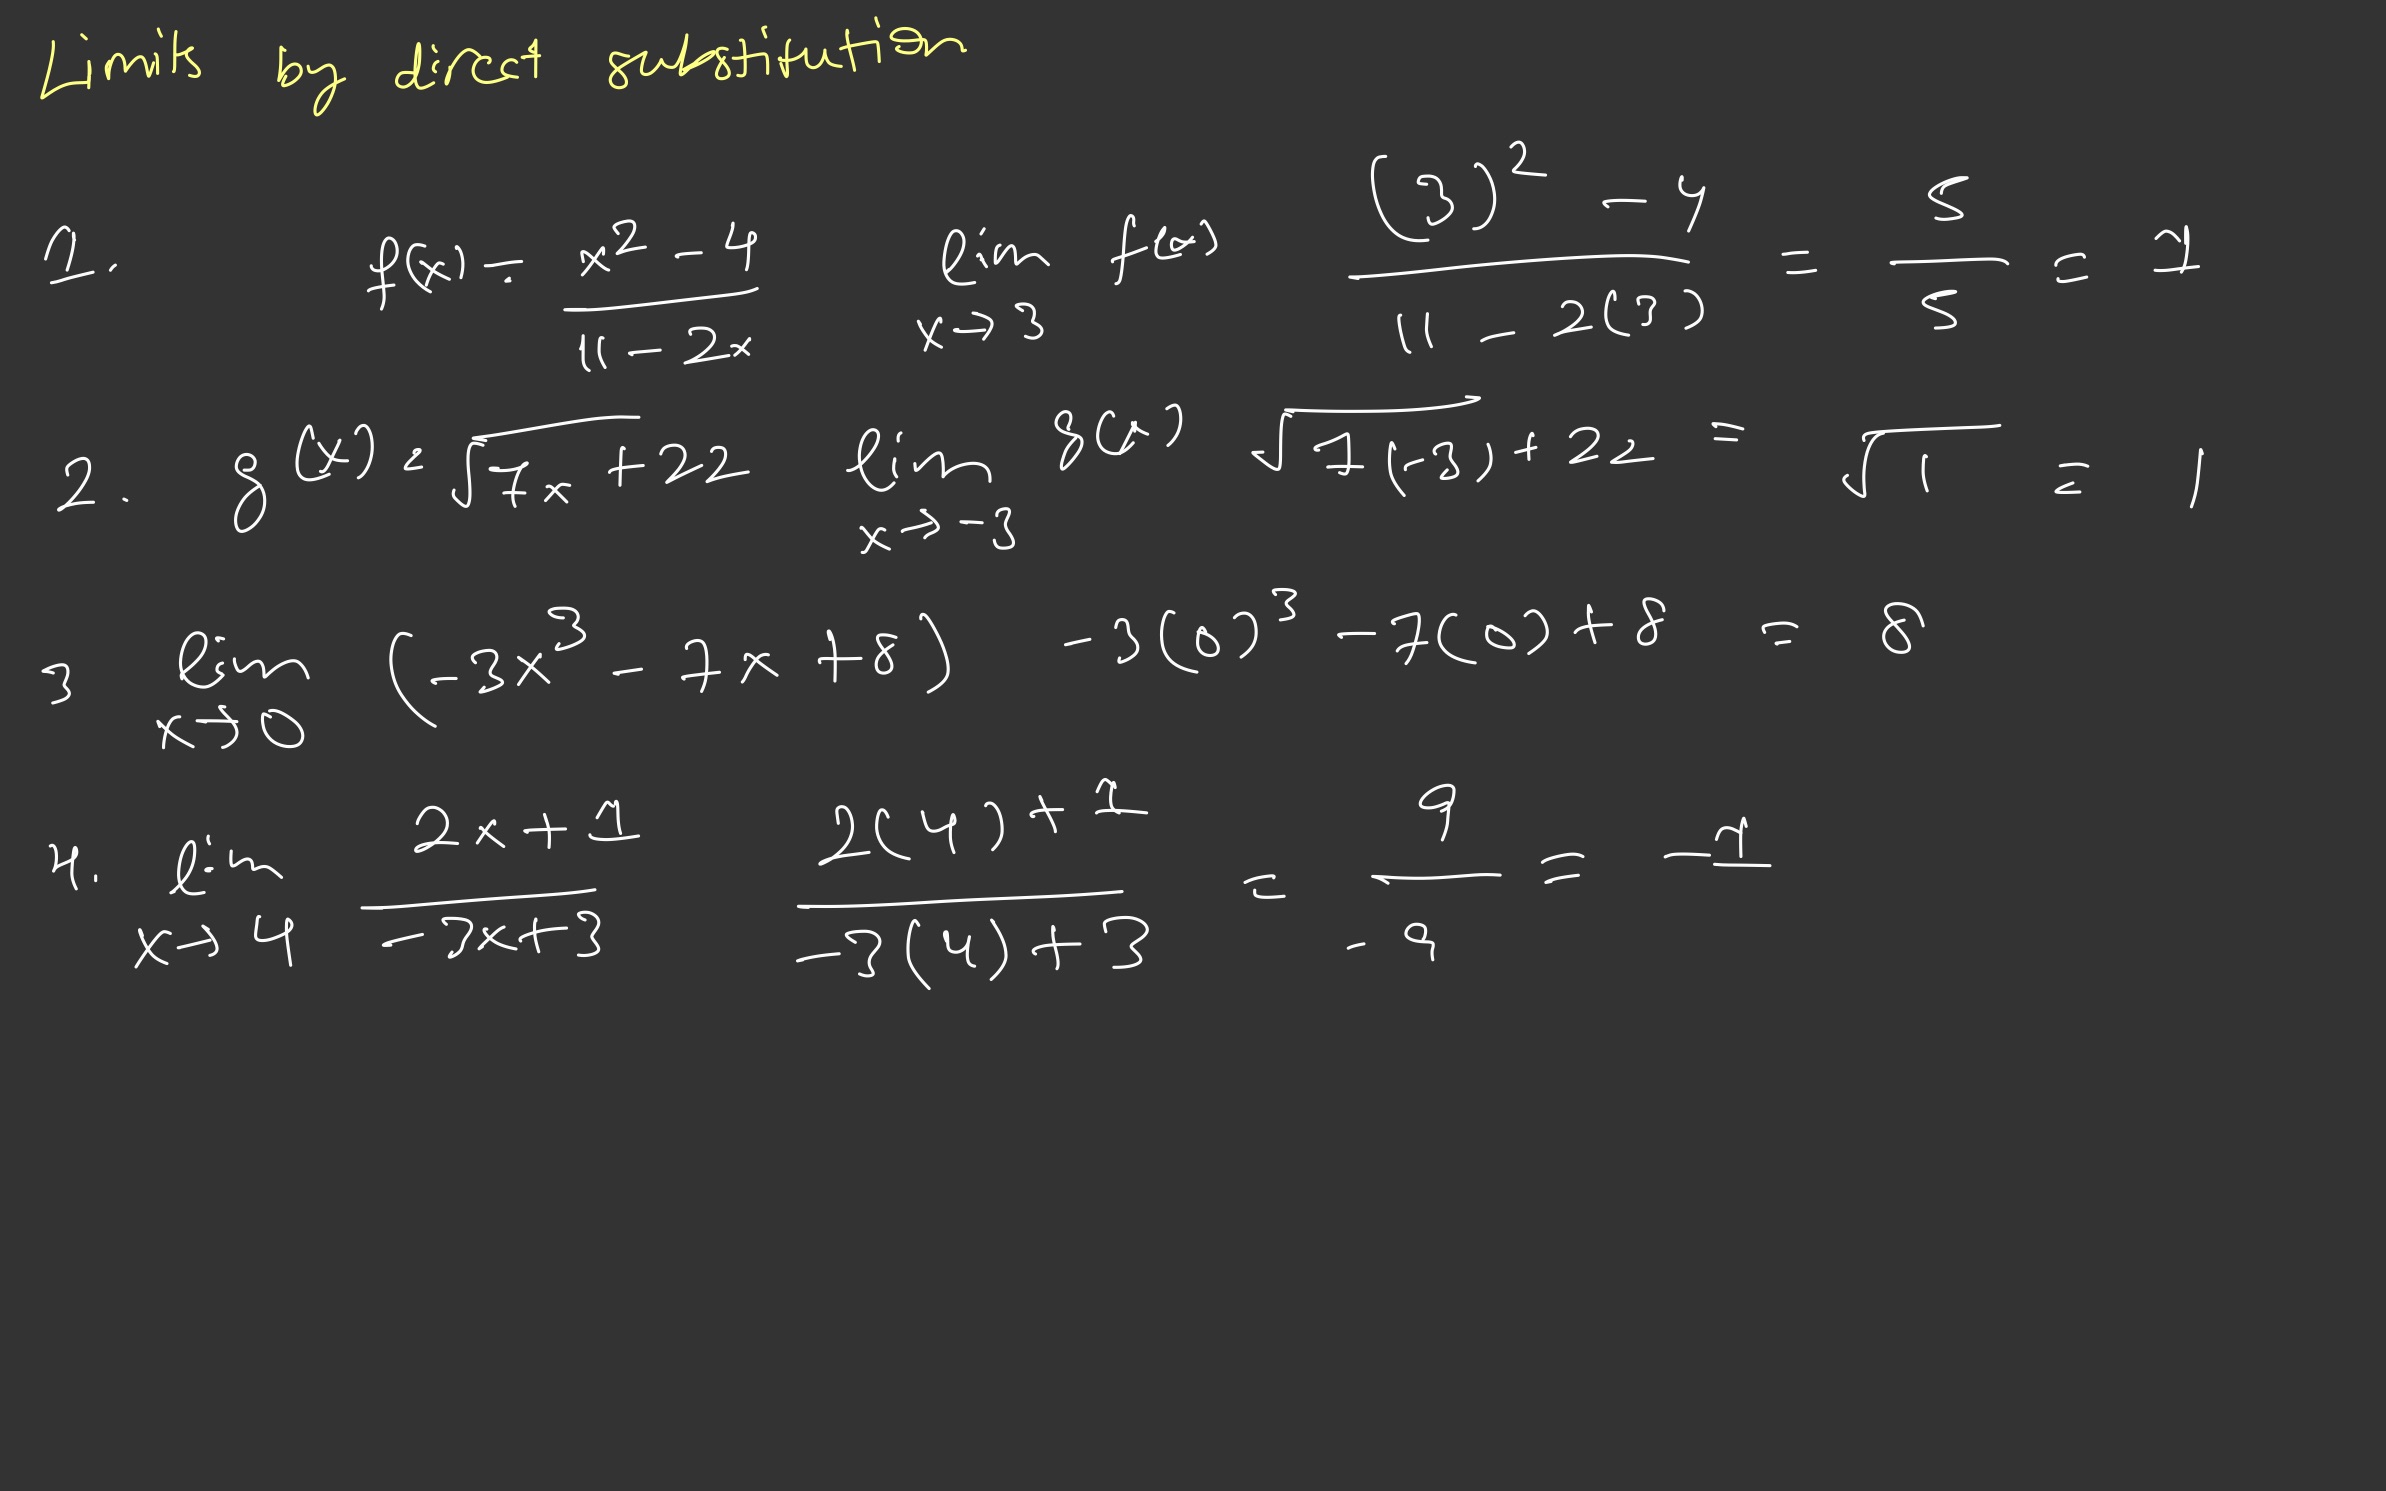 Limits by direct substitution
1. f(x) = (x² - 4)/(11 - 2x) lim x→3 f(x) ((3)² - 4)/(11 - 2(3)) = 5/5 = 1
2. g(x) = √7x + 22 lim x→-3 g(x) √7(-3) + 22 = √1 = 1
3 lim x→0 (-3x³ - 7x + 8) -3(0)³ - 7(0) + 8 = 8
4. lim x→4 (2x + 1)/(-3x + 3) (2(4) + 1)/(-3(4) + 3) = 9/-9 = -1